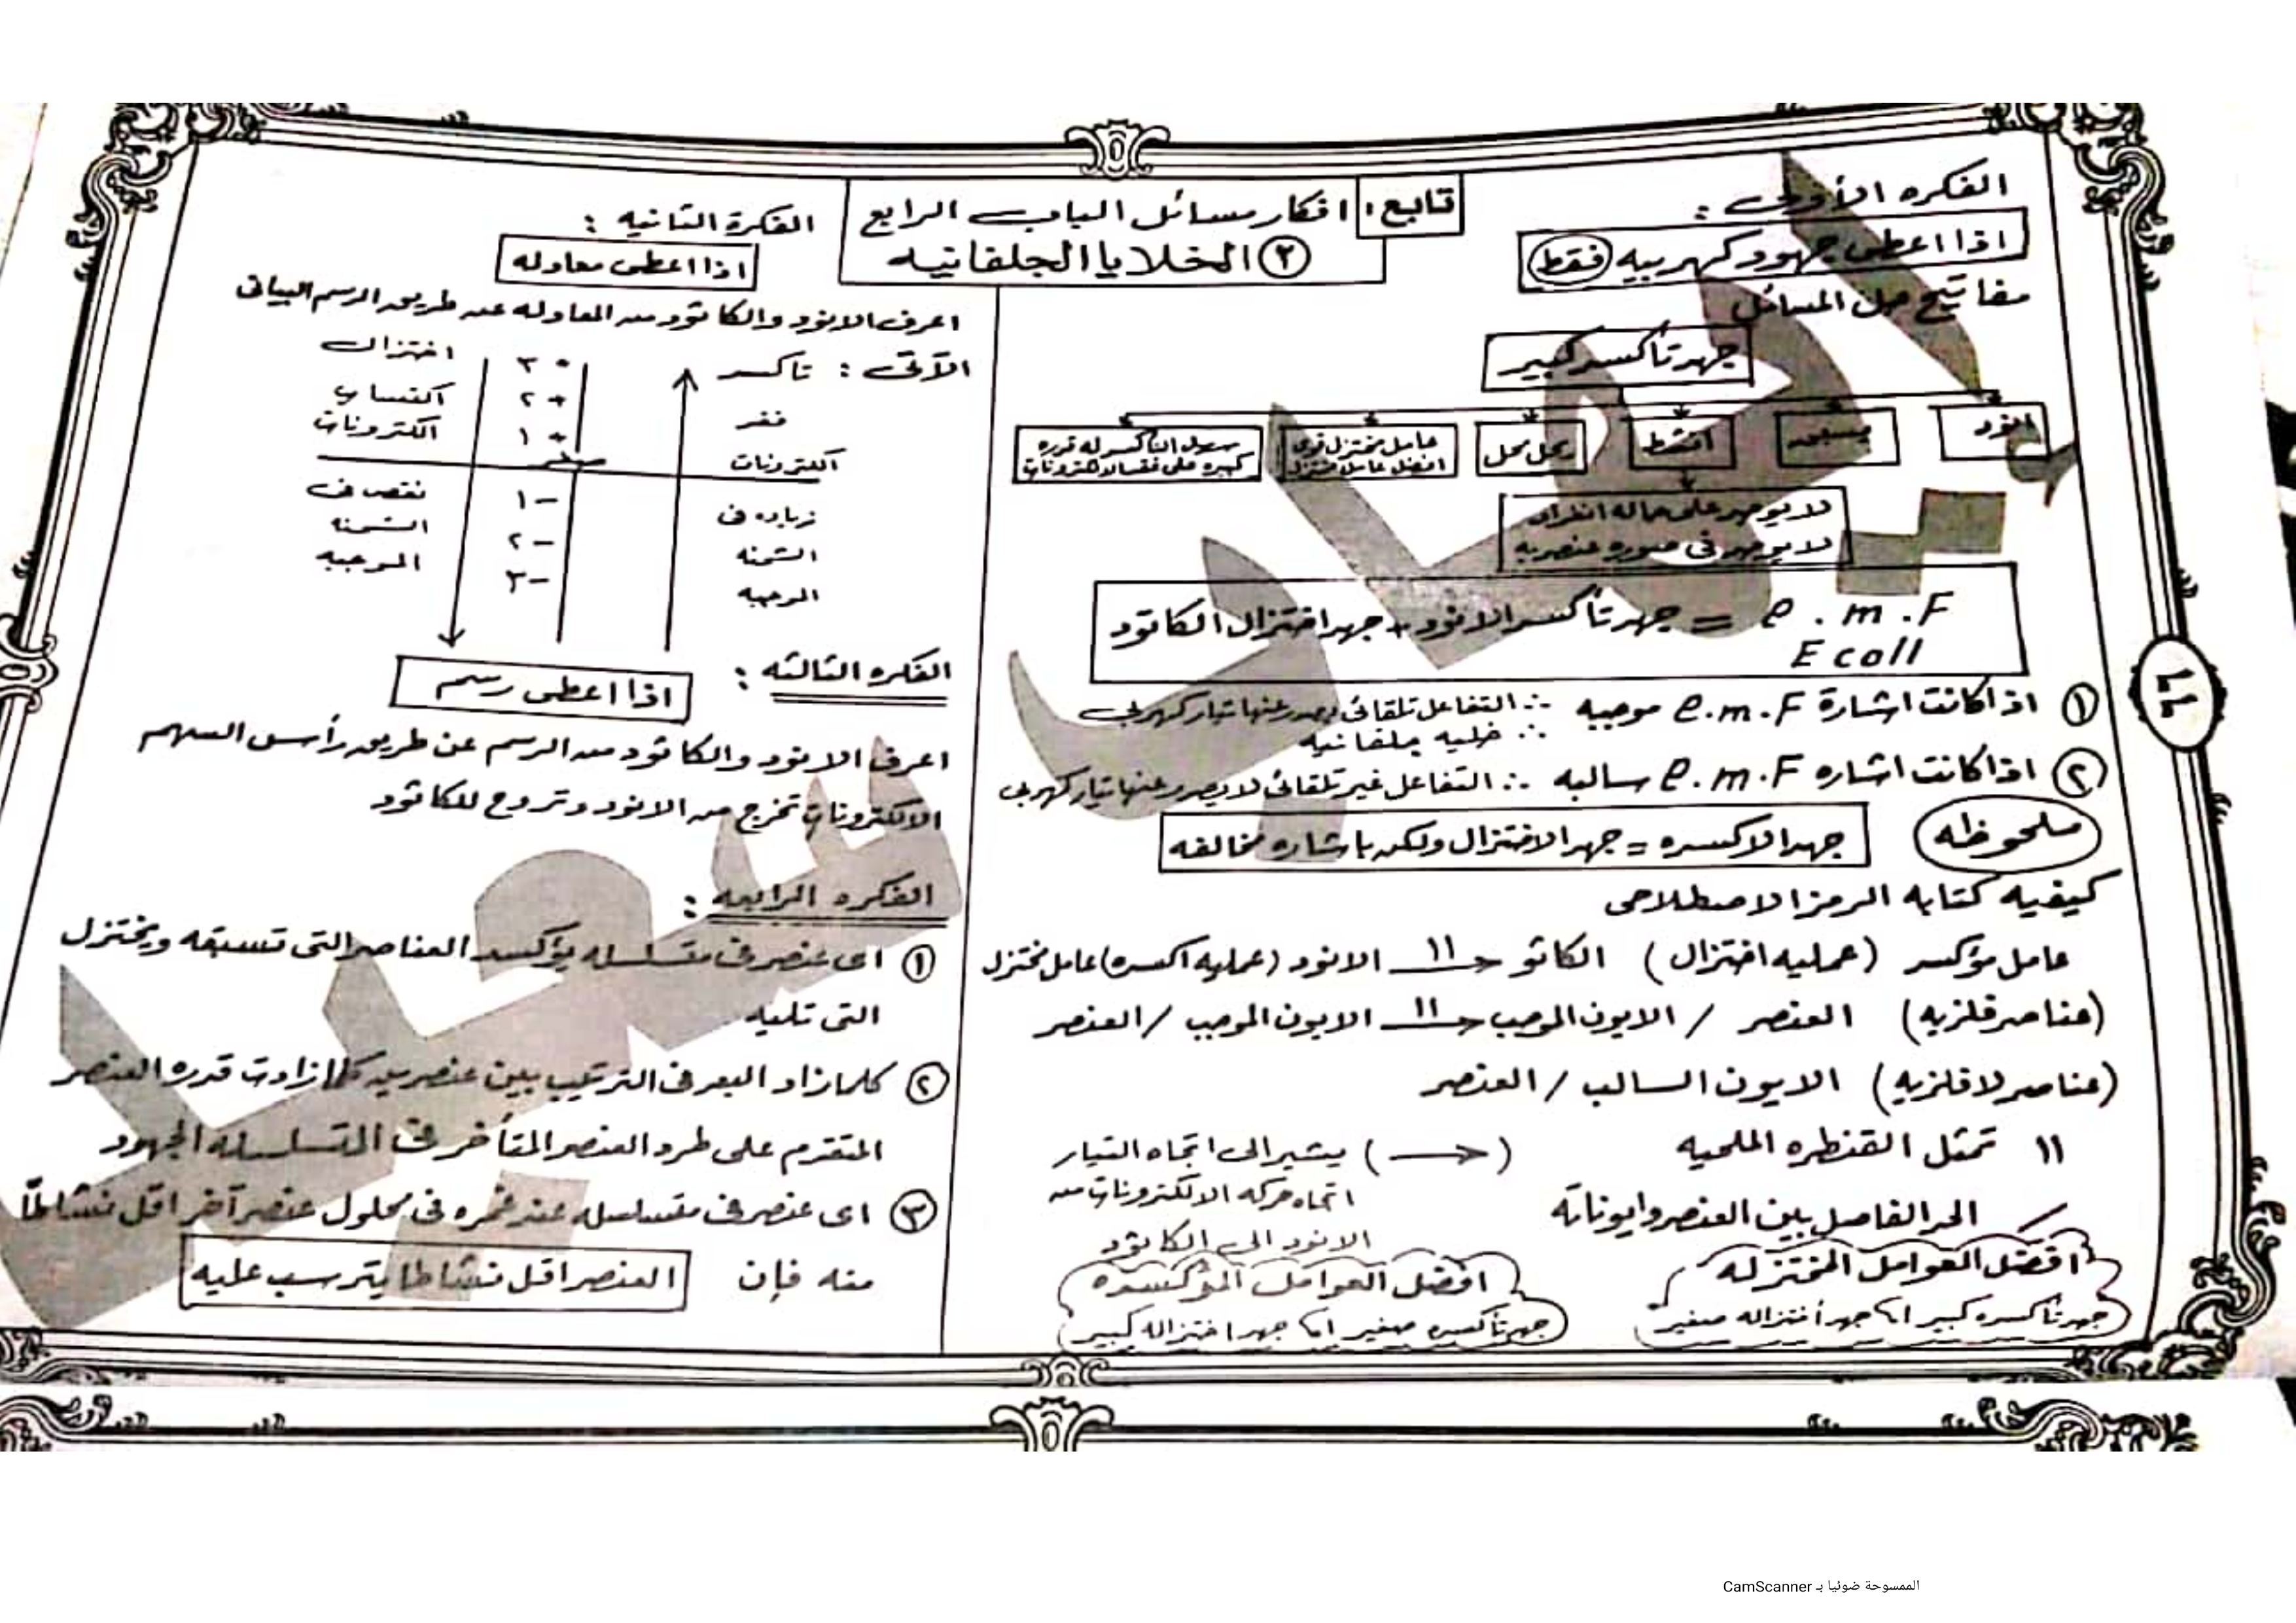 تابع: افكار مسائل الباب الرابع
٢ الخلايا الجلفانيه
الفكره الأولى :
اذا اعطى جهود كهربيه فقط
مفاتيح حل المسائل
جهد تأكسد كبير
انود
يسبق
انشط
يحل محل
عامل مختزل قوى
افضل عامل مختزل
سهل التأكسد له قدره
كبيره على فقد الالكترونات
لا يوجد على حاله انفراد
لا يوجد فى صوره عنصريه
e.m.F = جهد تأكسد الانود + جهد اختزال الكاثود
E coll
١ اذا كانت اشارة e.m.F موجبه ∴ التفاعل تلقائى يصدر عنها تيار كهربى
∴ خليه جلفانيه
٢ اذا كانت اشاره e.m.F سالبه ∴ التفاعل غير تلقائى لا يصدر عنها تيار كهربى
ملحوظه
جهد الاكسده = جهد الاختزال ولكن باشاره مخالفه
كيفيه كتابه الرمز الاصطلاحى
عامل مؤكسد (عمليه اختزال) الكاثو ← 11 الانود (عمليه اكسده) عامل مختزل
(عناصر فلزيه) العنصر / الايون الموجب ← 11 الايون الموجب / العنصر
(عناصر لا فلزيه) الايون السالب / العنصر
11 تمثل القنطره الملحيه
(→) يشير الى اتجاه التيار
اتجاه حركه الالكترونات من
الانود الى الكاثود
/ الحد الفاصل بين العنصر وايوناته
افضل العوامل المختزله
جهد تأكسده كبير اى جهد أختزاله صغير
افضل العوامل المؤكسده
جهد تأكسده صغير اى جهد اختزاله كبير
الفكرة الثانيه :
اذا اعطى معادله
اعرف الانود والكاثود من المعادله عن طريق الرسم البيانى
الآتى : تأكسد
فقد
الكترونات
زياده فى
الشحنه
الموجبه
+ ٣
+ ٢
+ ١
صفر
١ –
٢ –
٣ –
اختزال
اكتساب
الكترونات
نقص فى
الشحنه
الموجبه
الفكره الثالثه :
اذا اعطى رسم
اعرف الانود والكاثود من الرسم عن طريق رأس السهم
الالكترونات تخرج من الانود وتروح للكاثود
الفكره الرابعه :
١ اى عنصر فى متسلسله يؤكسد العناصر التى تسبقه ويختزل
التى تليه
٢ كلما زاد البعد فى الترتيب بين عنصرين كلما زادت قدره العنصر
المتقدم على طرد العنصر المتأخر فى التسلسله الجهود
٣ اى عنصر فى متسلسله عند غمره فى محلول عنصر آخر اقل نشاطاً
منه فإن العنصر اقل نشاطا يترسب عليه
الممسوحة ضوئيا بـ CamScanner